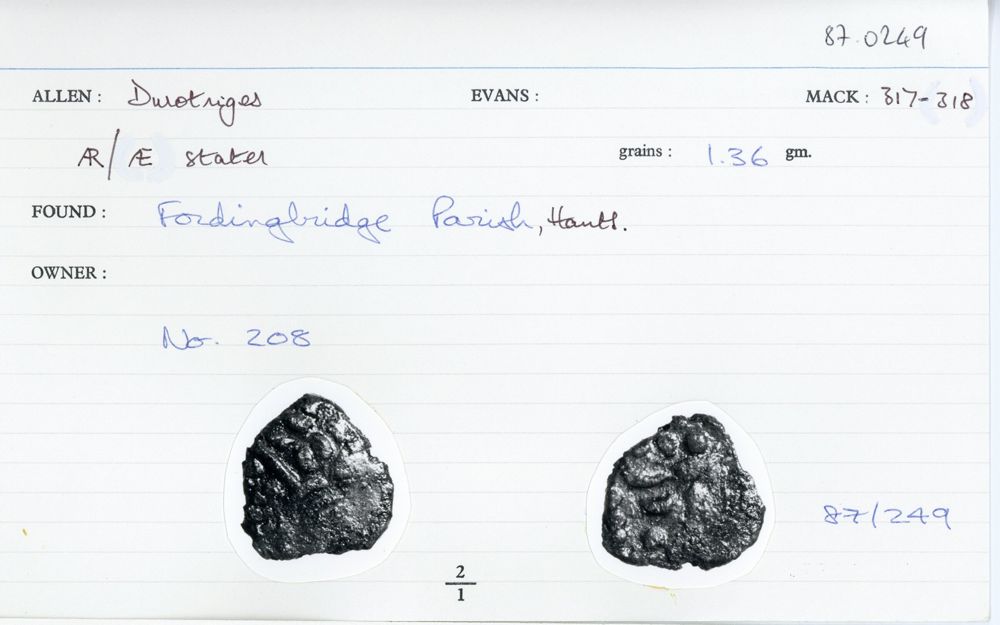 87.0249
ALLEN : Durotriges EVANS : MACK : 317-318
ÆR/Æ stater grains : 1.36 gm.
FOUND : Fordingbridge Parish, Hants.
OWNER :
No. 208
87/249
2
1